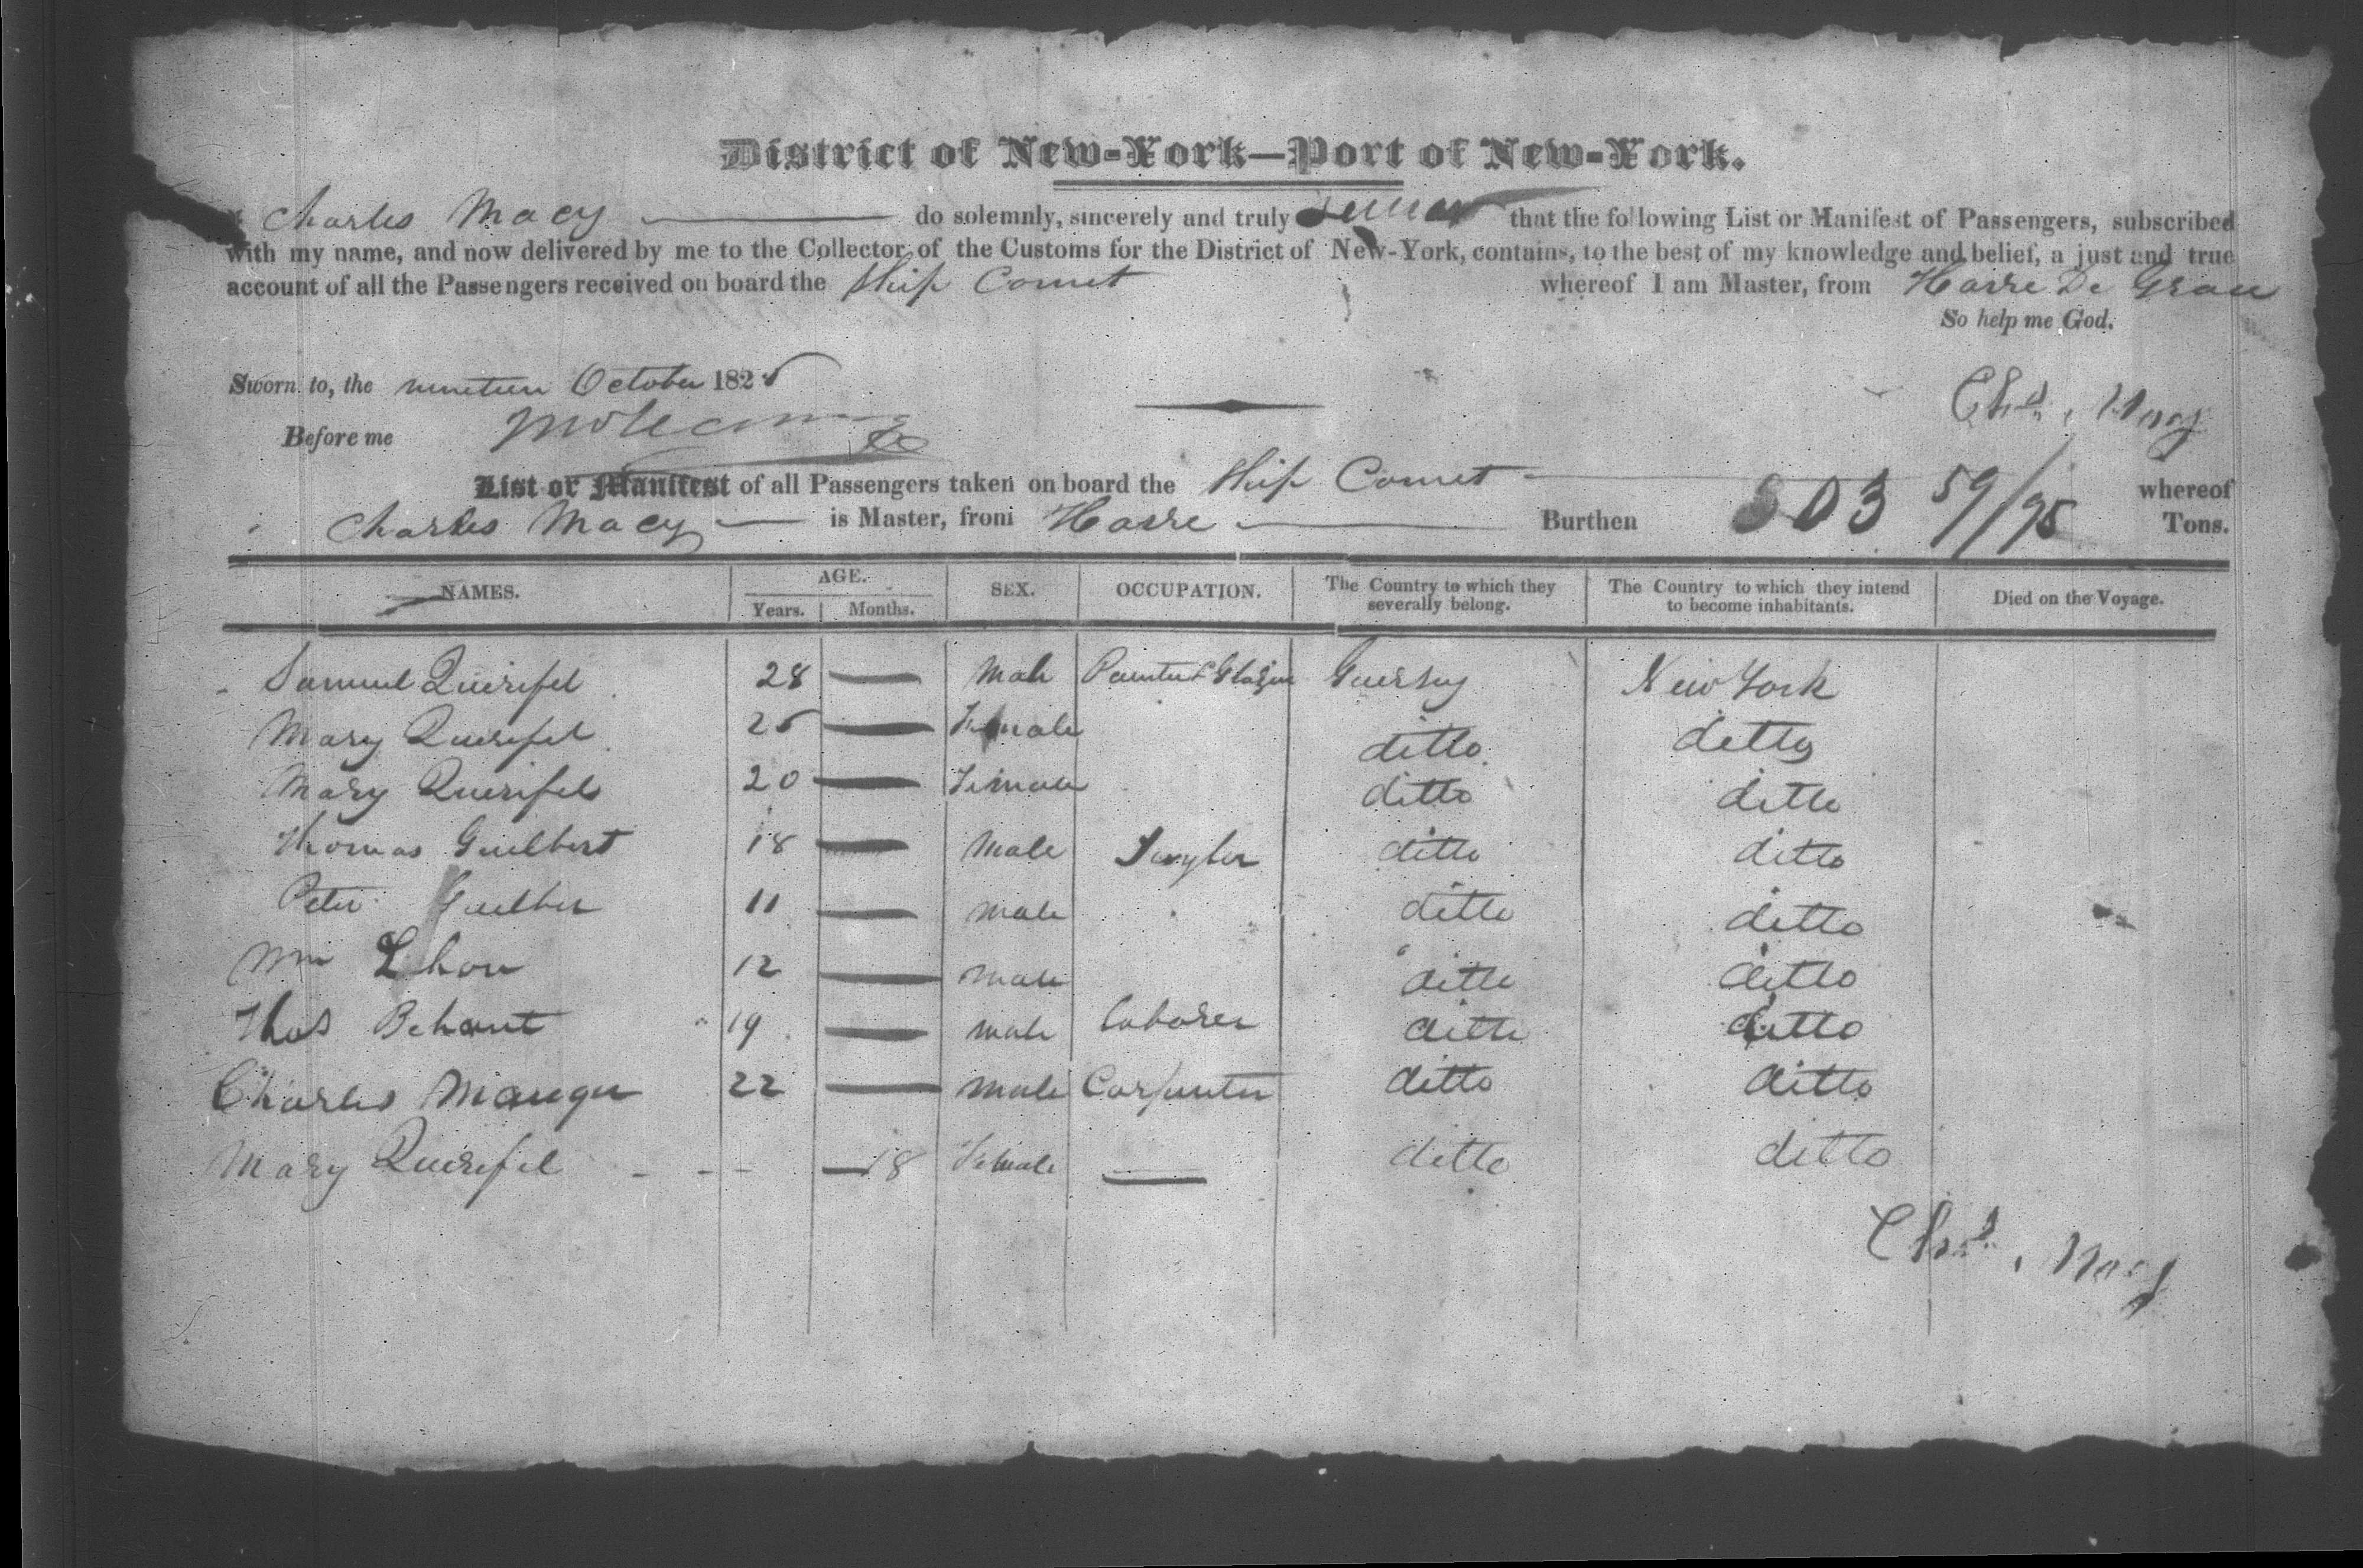 District of New-York—Port of New-York.
Charles Macy do solemnly, sincerely and truly swear that the following List or Manifest of Passengers, subscribed
with my name, and now delivered by me to the Collector of the Customs for the District of New-York, contains, to the best of my knowledge and belief, a just and true
account of all the Passengers received on board the Ship Comet whereof I am Master, from Havre De Grace
So help me God.
Sworn to, the nineteen October 1825
Chas. Macy
Before me
List or Manifest of all Passengers taken on board the Ship Comet whereof
Charles Macy is Master, from Havre Burthen 303 59/95 Tons.
NAMES. AGE. Years. Months. SEX. OCCUPATION. The Country to which they severally belong. The Country to which they intend to become inhabitants. Died on the Voyage.
Samuel Queripel 28 — Male Painter & Glazier Guersey New York
Mary Queripel 25 — Female ditto ditto
Mary Queripel 20 — Female ditto ditto
Thomas Guilbert 18 — Male Tayler ditto ditto
Peter Guilber 11 — male ditto ditto
Wm 12 — male ditto ditto
Thos 19 — male laborer ditto ditto
Charles Mauger 22 — male Carpenter ditto ditto
Mary Queripel - - - — 18 Female — ditto ditto
Chas. Macy